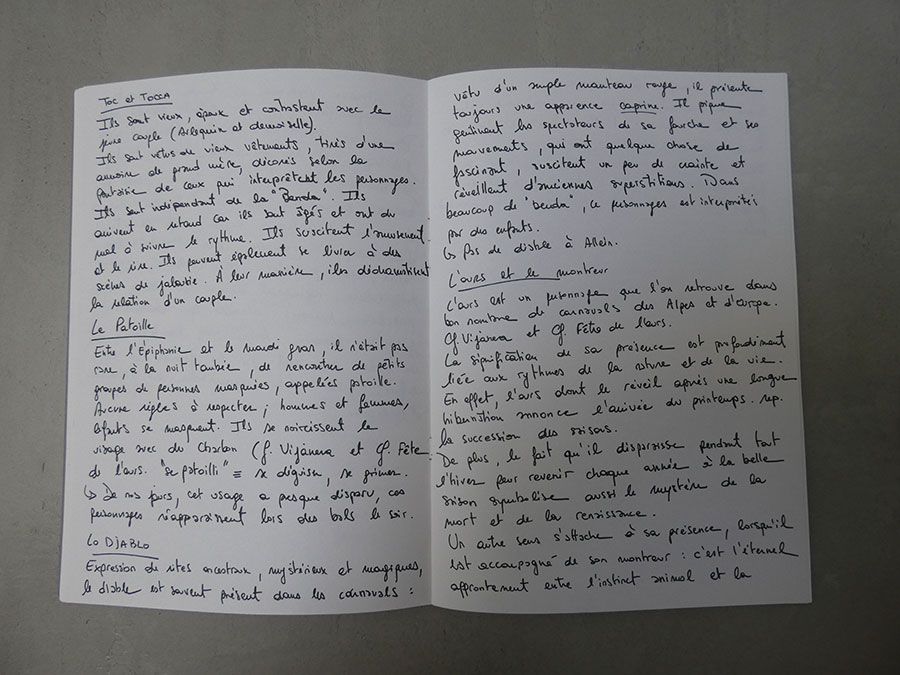 Toc et Tocca
Ils sont vieux, époux et contrastent avec le
jeune couple (Arlequin et demoiselle).
Ils sont vêtus de vieux vêtements, tirés d'une
armoire de grand mère, décorés selon la
fantaisie de ceux qui interprètent les personnages.
Ils sont indépendant de la "Benda". Ils
arrivent en retard car ils sont âgés et ont du
mal à suivre le rythme. Ils suscitent l'amusement
et le rire. Ils peuvent également se livrer à des
scènes de jalousie. À leur manière, ils dédramatisent
la relation d'un couple.
Le Patoille
Entre l'Épiphanie et le mardi gras, il n'était pas
rare, à la nuit tombée, de rencontrer de petits
groupes de personnes masquées, appelées patoille.
Aucune règles à respecter; hommes et femmes,
enfants se masquent. Ils se noircissent le
visage avec du charbon (Cf. Vijanera et Cf. Fête
de l'ours. "se patoilli" = se déguiser, se grimer.
↳ De nos jours, cet usage a presque disparu, ces
personnages réapparaissent lors des bals le soir.
Lo Djablo
Expression de rites ancestraux, mystérieux et magiques,
le diable est souvent présent dans les carnavals :
vêtu d'un simple manteau rouge, il présente
toujours une apparence caprine. Il pique
gentiment les spectateurs de sa fourche et ses
mouvements, qui ont quelque chose de
fascinant, suscitent un peu de crainte et
réveillent d'anciennes superstitions. Dans
beaucoup de "benda", ce personnages est interprétés
par des enfants.
↳ Pas de diable à Allein.
L'ours et le montreur
L'ours est un personnage que l'on retrouve dans
bon nombre de carnavals des Alpes et d'Europe.
Cf. Vijanera et Cf. Fête de l'ours.
La signification de sa présence est profondément
liée aux rythmes de la nature et de la vie.
En effet, l'ours dont le réveil après une longue
hibernation annonce l'arrivée du printemps. rep.
la succession des saisons.
De plus, le fait qu'il disparaisse pendant tout
l'hiver pour revenir chaque année à la belle
saison symbolise aussi le mystère de la
mort et de la renaissance.
Un autre sens s'attache à sa présence, lorsqu'il
est accompagné de son montreur : c'est l'éternel
affrontement entre l'instinct animal et la